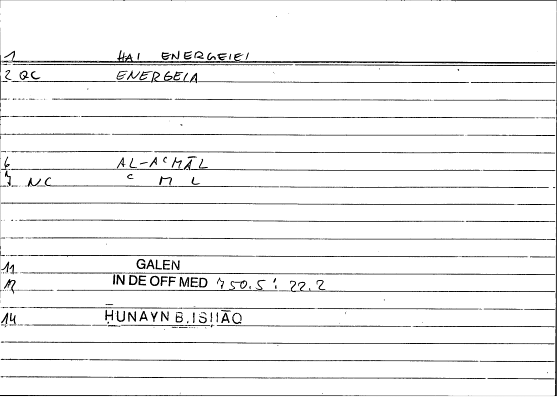 1 HAI ENERGEIEI
2 QC ENERGEIA
6 AL-AᶜMĀL
7 NC ᶜ M L
11 GALEN
12 IN DE OFF MED 750.5 : 22.2
14 ḤUNAYN B. ISḤĀQ